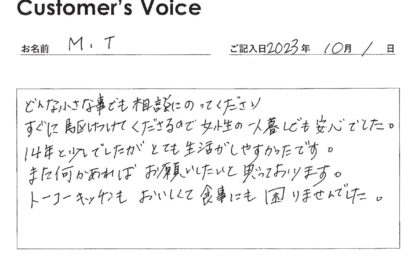 Customer's Voice
お名前 M.T ご記入日2023年 10月 1日
どんな小さな事でも相談にのってくださり
すぐに駆けつけてくださるので女性の一人暮しでも安心でした。
14年と少しでしたがとても生活がしやすかったです。
また何かあれば お願いしたいと思っております。
トーコーキッチンも おいしくて 食事にも 困りませんでした。